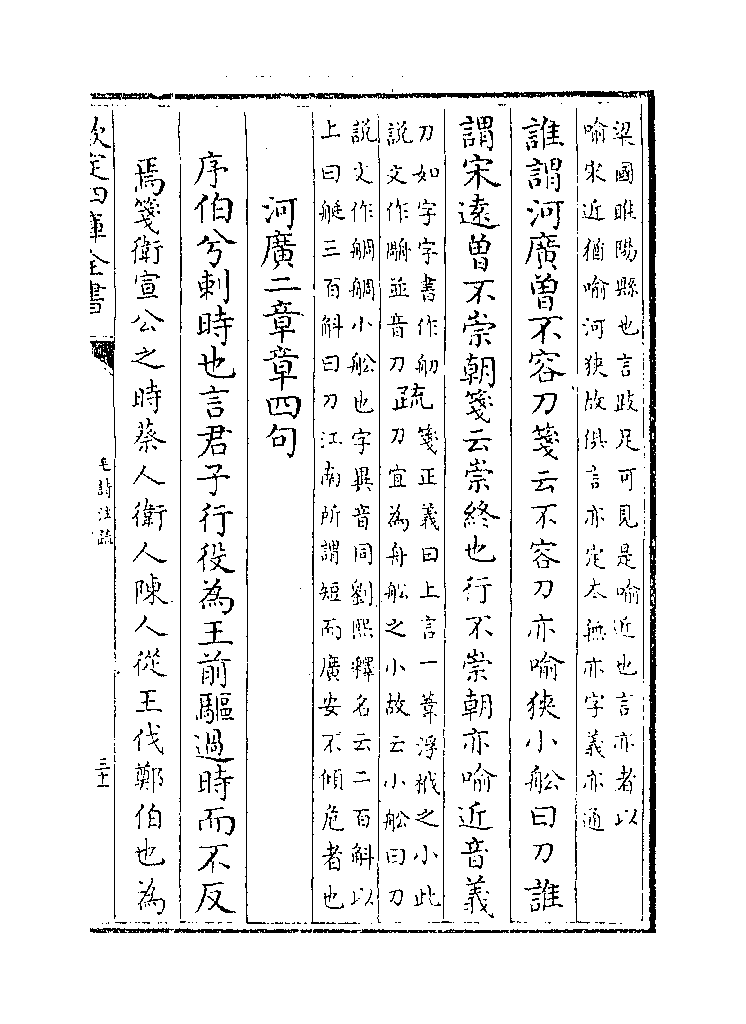 梁國睢陽縣也言跂足可見是喻近也言亦者以
喻宋近猶喻河狹故俱言亦定本無亦字義亦通
誰謂河廣曾不容刀箋云不容刀亦喻狹小船曰刀誰
謂宋遠曾不崇朝箋云崇終也行不崇朝亦喻近音義
刀如字字書作舠疏箋正義曰上言一葦浮栰之小此
說文作𦩍並音刀刀宜為舟船之小故云小船曰刀
說文作鯛鯛小船也字異音同劉熙釋名云二百斛以
上曰艇三百斛曰刀江南所謂短而廣安不傾危者也
河廣二章章四句
序伯兮刺時也言君子行役為王前驅過時而不反
焉箋衛宣公之時蔡人衛人陳人從王伐鄭伯也為
欽定四庫全書
毛詩注疏
三十